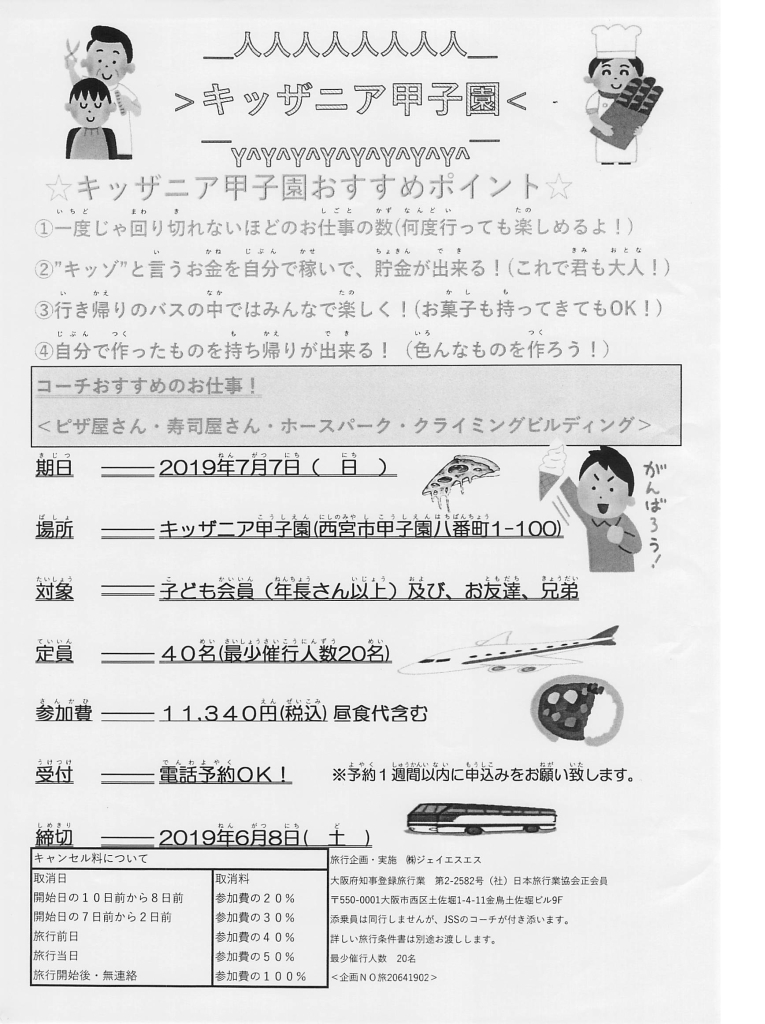 ＿人人人人人人人人＿
＞キッザニア甲子園＜
￣Y^Y^Y^Y^Y^Y^Y^Y￣
☆キッザニア甲子園おすすめポイント☆
①一度じゃ回り切れないほどのお仕事の数(何度行っても楽しめるよ！)
②”キッゾ”と言うお金を自分で稼いで、貯金が出来る！(これで君も大人！)
③行き帰りのバスの中ではみんなで楽しく！(お菓子も持ってきてもOK！)
④自分で作ったものを持ち帰りが出来る！（色んなものを作ろう！)
コーチおすすめのお仕事！
＜ピザ屋さん・寿司屋さん・ホースパーク・クライミングビルディング＞
期日 ―― 2019年7月7日（ 日 ）
がんばろう！
場所 ―― キッザニア甲子園(西宮市甲子園八番町1-100)
対象 ―― 子ども会員（年長さん以上）及び、お友達、兄弟
定員 ―― ４０名(最少催行人数20名)
参加費 ―― １１,３４０円(税込) 昼食代含む
受付 ―― 電話予約OK！ ※予約１週間以内に申込みをお願い致します。
締切 ―― 2019年6月8日( 土 )
キャンセル料について
取消日 取消料
開始日の１０日前から８日前 参加費の２０％
開始日の７日前から２日前 参加費の３０％
旅行前日 参加費の４０％
旅行当日 参加費の５０％
旅行開始後・無連絡 参加費の１００％
旅行企画・実施 ㈱ジェイエスエス
大阪府知事登録旅行業 第2-2582号（社）日本旅行業協会正会員
〒550-0001大阪市西区土佐堀1-4-11金鳥土佐堀ビル9F
添乗員は同行しませんが、JSSのコーチが付き添います。
詳しい旅行条件書は別途お渡しします。
最少催行人数 20名
＜企画ＮＯ旅20641902＞